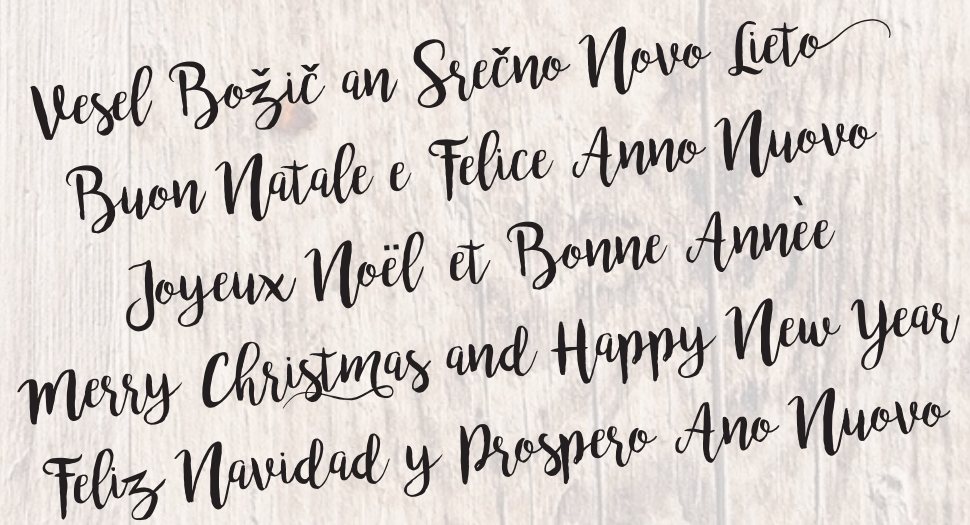 Vesel Božič an Srečno Novo Lieto
Buon Natale e Felice Anno Nuovo
Joyeux Noël et Bonne Annèe
Merry Christmas and Happy New Year
Feliz Navidad y Prospero Ano Nuovo